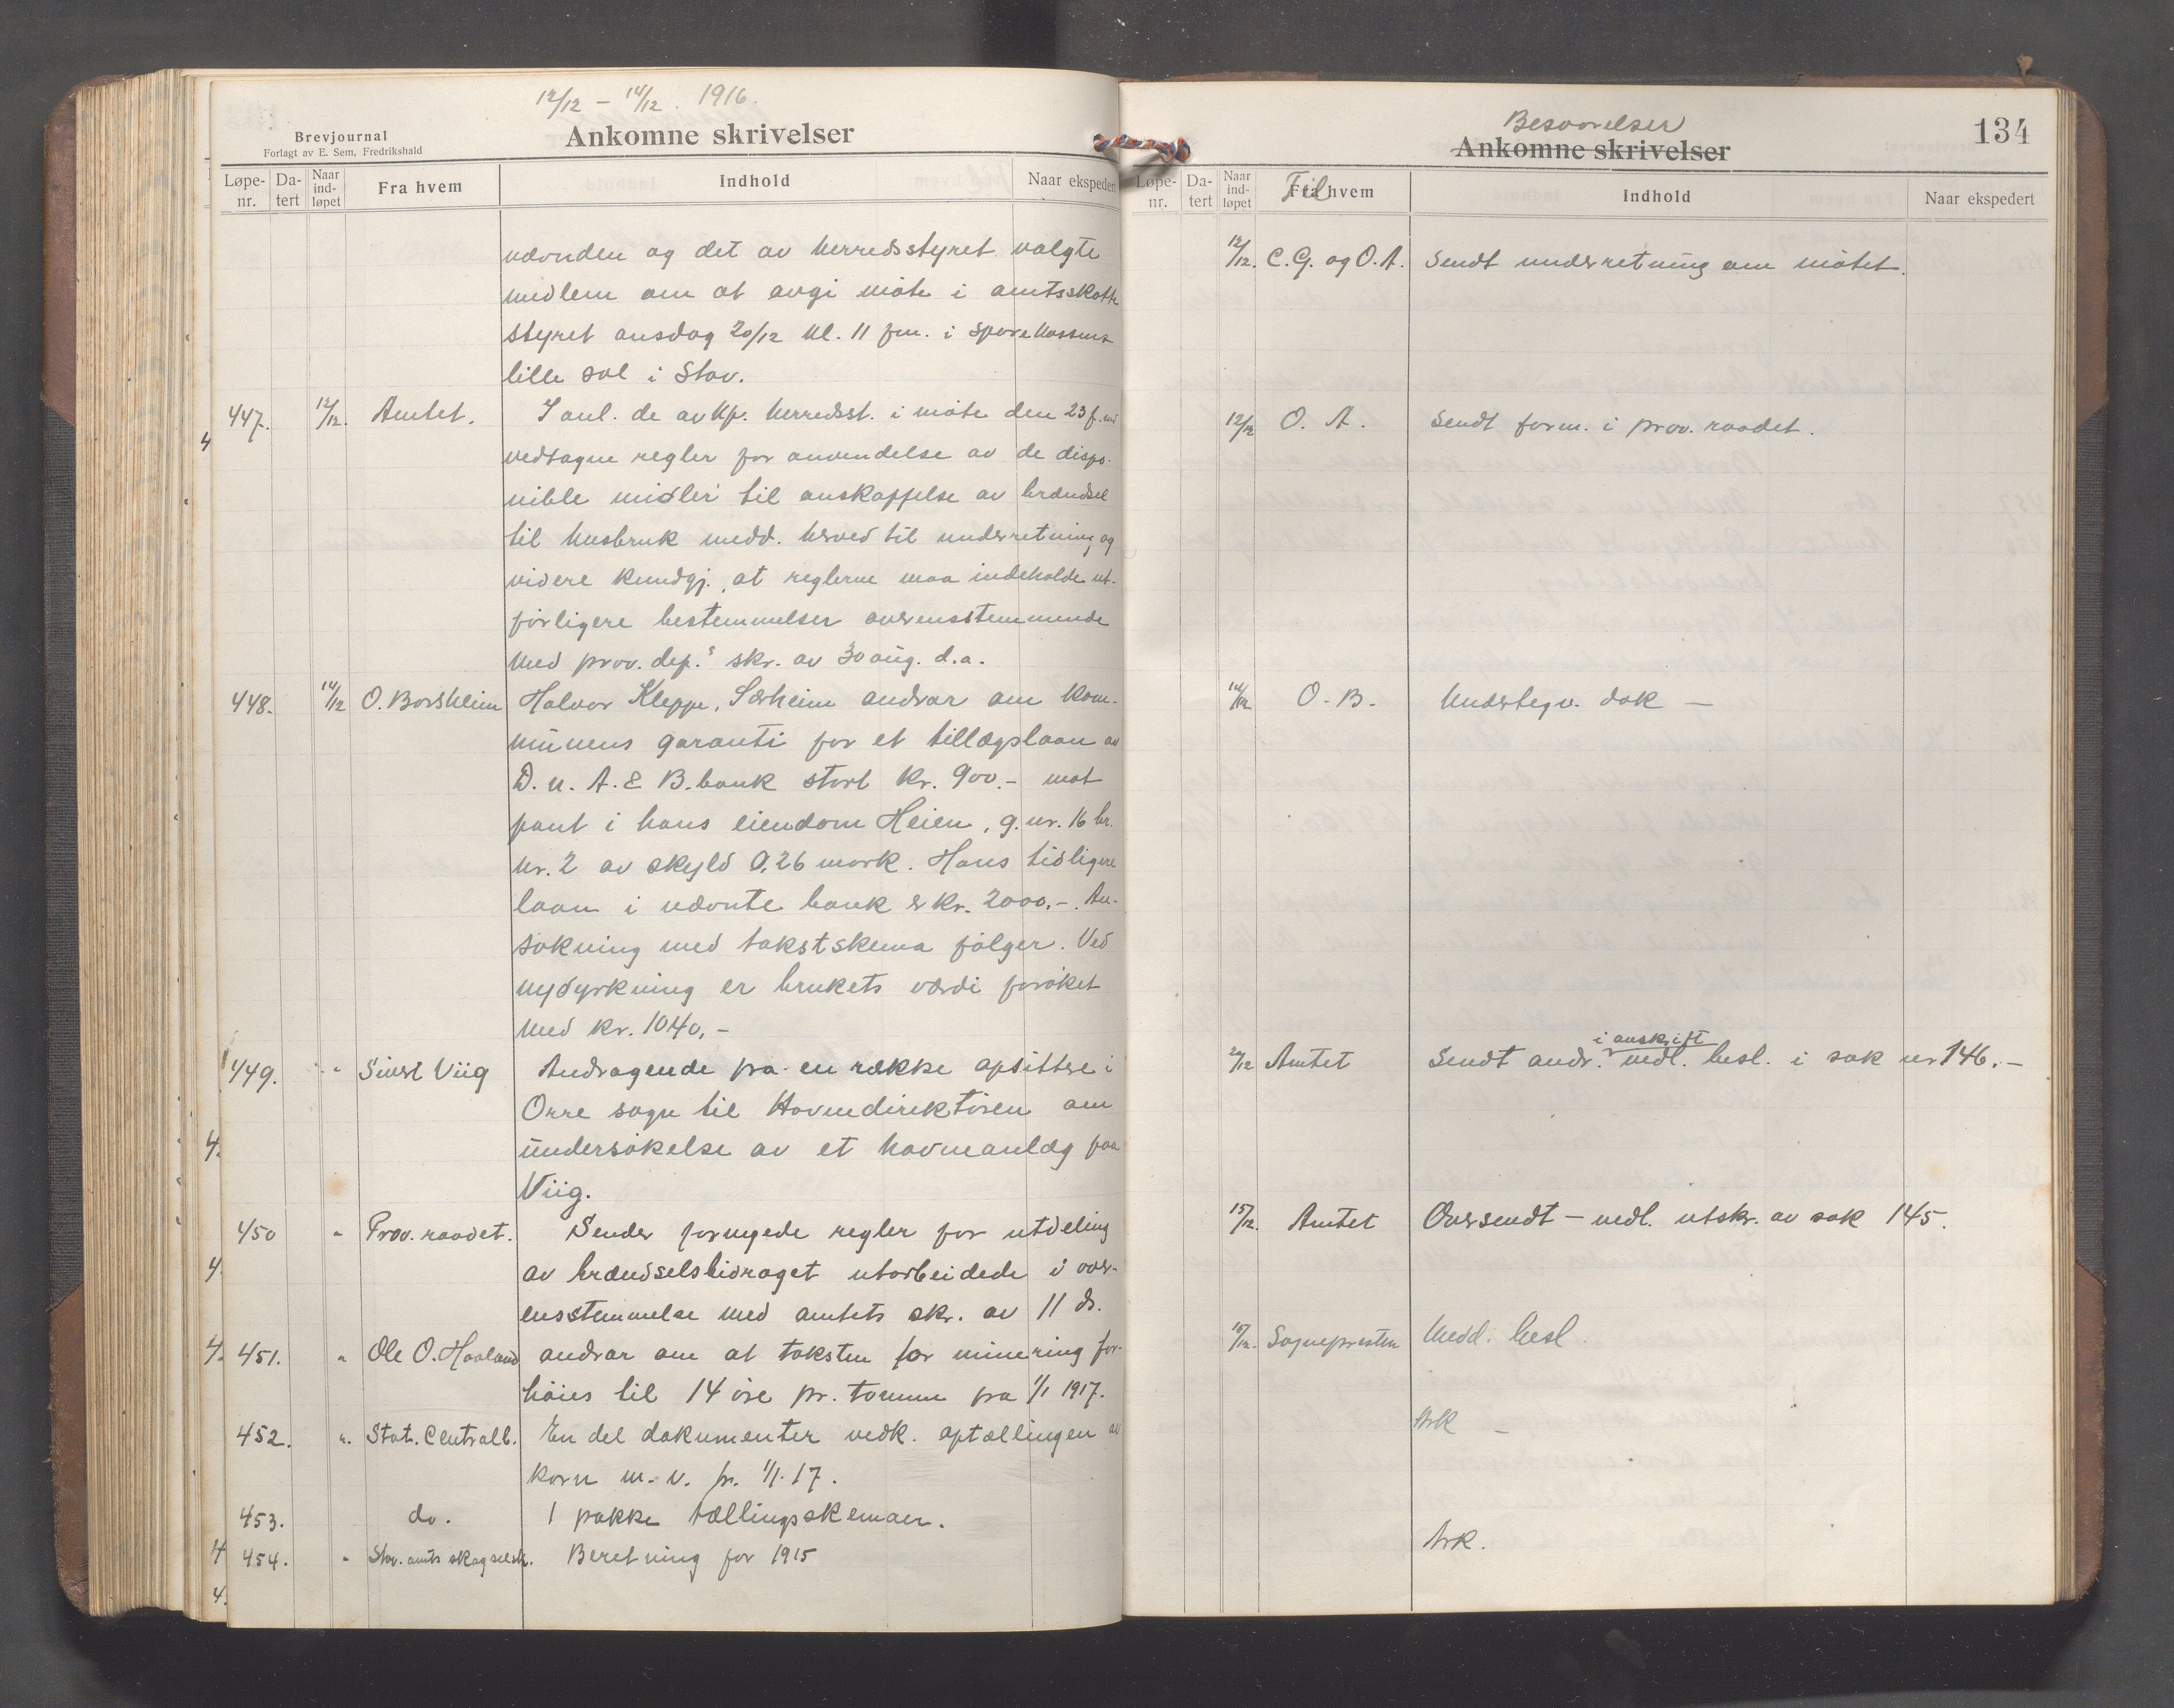 12/12 – 14/12. 1916.
Brevjournal
Forlagt av E. Sem, Fredrikshald
Ankomne skrivelser
Løpe-nr. Da-tert Naar ind-løpet Fra hvem Indhold Naar ekspedert
nævnden og det av herredsstyret valgte
medlem om at avgi møte i amtsskatte
styret onsdag 20/12 kl. 11 fm. i sparekassens
lille sal i Stav.
447. 12/12. Amtet. I anl. de av Kp. herredsst. i møte den 23 f.md
vedtagne regler for anvendelse av de dispo-
nible midler til anskaffelse av brændsel
til husbruk medd. herved til underretning og
videre kundgj., at reglerne maa indeholde ut-
førligere bestemmelser overensstemmende
med prov. dep.s skr. av 30 aug. d.a.
448. 14/12 O. Borsheim Halvor Kleppe, Særheim andrar om kom-
munens garanti for et tillægslaan av
D. n. A. & B. bank stort kr. 900.– mot
pant i hans eiendom Heien, g.nr. 16 br.
nr. 2 av skyld 0,26 mark. Hans tidligere
laan i nævnte bank er kr. 2000.–. An-
søkning med takstskema følger. Ved
nydyrkning er brukets værdi forøket
med kr. 1040,–
449. " Sivert Viig Andragende fra en række opsittere i
Orre sogn til Havnedirektøren om
undersøkelse av et havneanlæg paa
Viig.
450 " Prov. raadet. Sender fornyede regler for utdeling
av brændselsbidraget utarbeidede i over-
ensstemmelse med amtets skr. av 11 ds.
451. " Ole O. Haaland andrar om at taksten for minering for-
høies til 14 øre pr. tomme fra 1/1 1917.
452. " Stat. Centralb. En del dokumenter vedk. optællingen av
korn m. v. pr. 1/1. 17.
453. do. 1 pakke tællingsskemaer.
454. " Stav. amts skogselsk. Beretning for 1915
134
Besvarelser
Ankomne skrivelser
Løpe-nr. Da-tert Naar ind-løpet Fra hvem Til Indhold Naar ekspedert
12/12. C. G. og O. A. Sendt underretning om møtet.
12/12 O. A. Sendt form. i prov. raadet.
14/12 O. B. Undertegn. dok –
i avskrift
2/12 Amtet Sendt andr. vedl. besl. i sak nr 146.–
15/12. Amtet Oversendt – vedl. utskr. av sak 145.
15/12. Sognepresten Medd. besl.
Ark –
Ark.